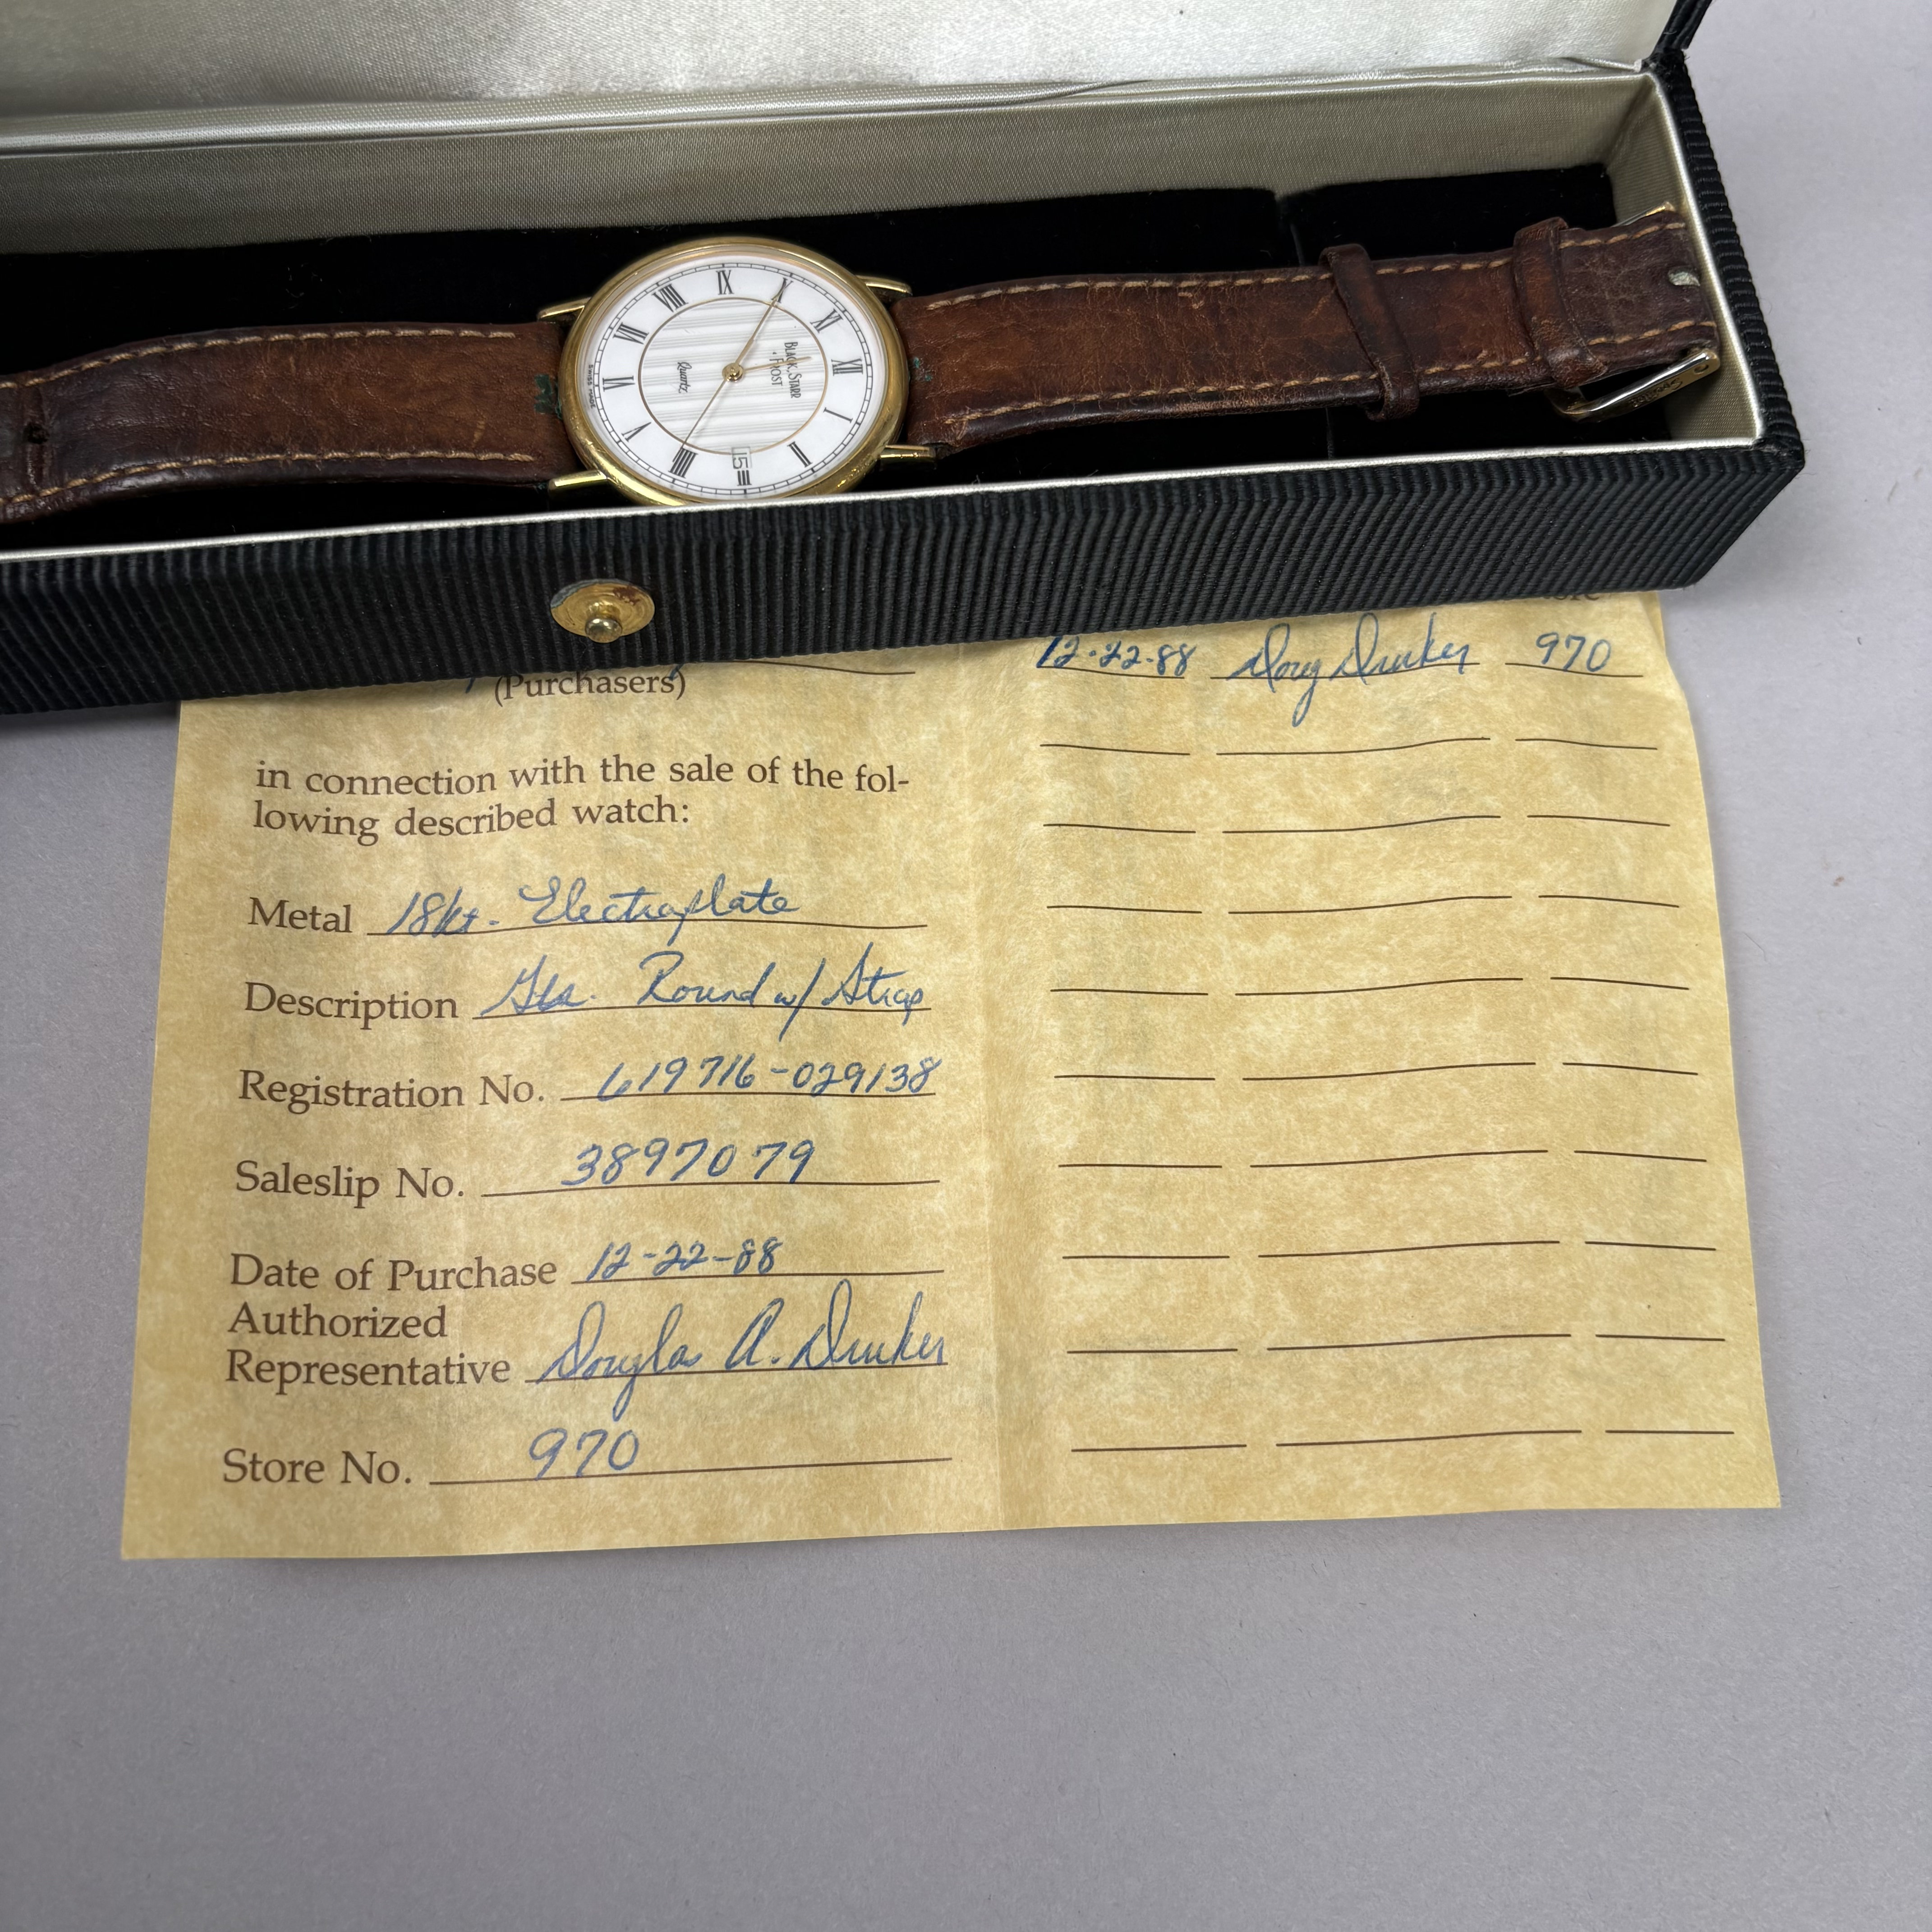 IX
X
XI
XII
I
II
III
IIII
V
VI
VII
VIII
BLACK, STARR
& FROST
Quartz
15
SWISS MADE
(Purchasers)
in connection with the sale of the fol-
lowing described watch:
Metal 18kt. Electroplate
Description Gts. Round w/ Strap
Registration No. 619716-029138
Saleslip No. 3897079
Date of Purchase 12-22-88
Authorized
Representative Douglas A. Drucker
Store No. 970
12-22-88 Doug Drucker 970